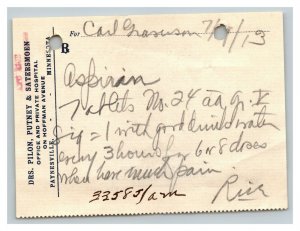 DRS. PILON, PUTNEY & SATERSMOEN
OFFICE AND PRIVATE HOSPITAL
ON HOFFMAN AVENUE
PAYNESVILLE, MINNESOTA
For Carl 7/ /13
℞
Aspirin
Tablets No. 24 aa gr. V
Sig = 1 with good drink water
every 3 hours for 6 or 8 doses
when have much pain
33585/am